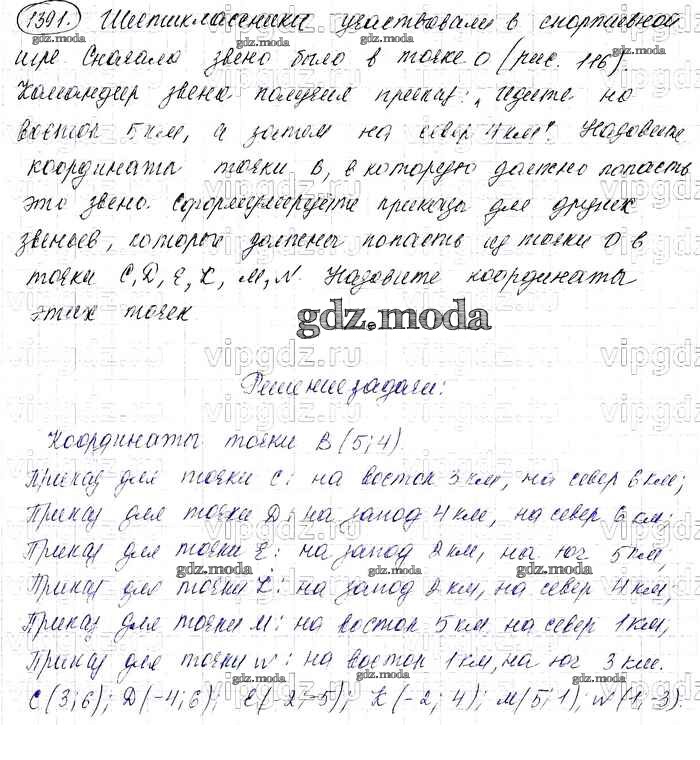 1391. Шестиклассники участвовали в спортивной
игре. Сначала звено было в точке O (рис. 116).
Командир звена получил приказ: "Идите на
восток 5 км, а затем на север 4 км". Назовите
координаты точки B, в которую должно попасть
это звено. Сформулируйте приказы для других
звеньев, которые должны попасть из точки O в
точки C, D, E, K, M, N. Назовите координаты
этих точек
gdz.moda
Решение задачи:
Координаты точки B (5; 4).
Приказ для точки C: на восток 3 км, на север 6 км;
Приказ для точки D: на запад 4 км, на север 6 км;
Приказ для точки E: на запад 2 км, на юг 5 км,
Приказ для точки K: на запад 2 км, на север 4 км,
Приказ для точки M: на восток 5 км на север 1 км,
Приказ для точки N: на восток 1 км, на юг 3 км.
C (3; 6); D (-4; 6); E (-2; -5); K (-2; 4); M (5; 1); N (1; -3).